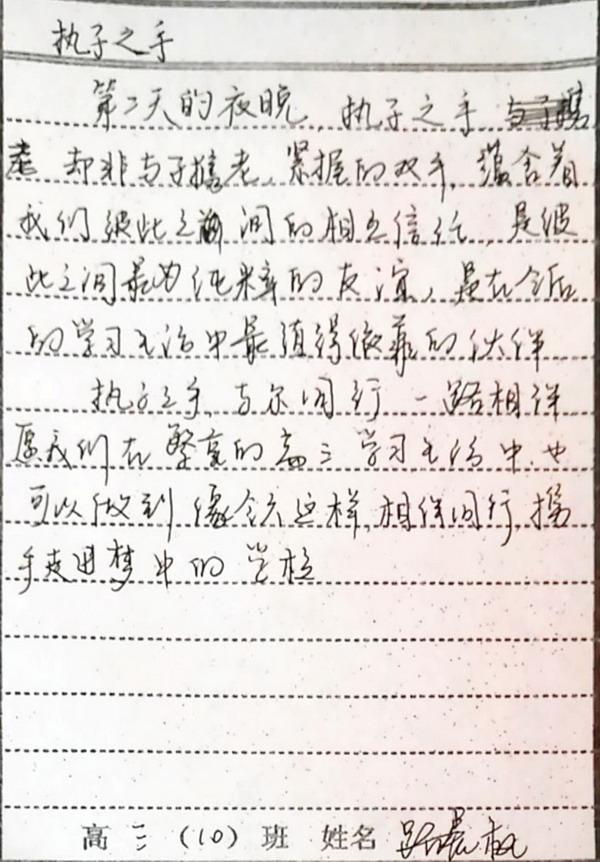 执子之手
第二天的夜晚,执子之手
却非与子携老,紧握的双手,蕴含着
我们彼此之间的相互信任,是彼
此之间最为纯粹的友谊,是在今后
的学习生活中最值得依靠的伙伴
执子之手,与尔同行 一路相伴
愿我们在繁忙的高三学习生活中,也
可以做到像今天这样,相伴同行,携
手走进梦中的学校
高三(10)班 姓名